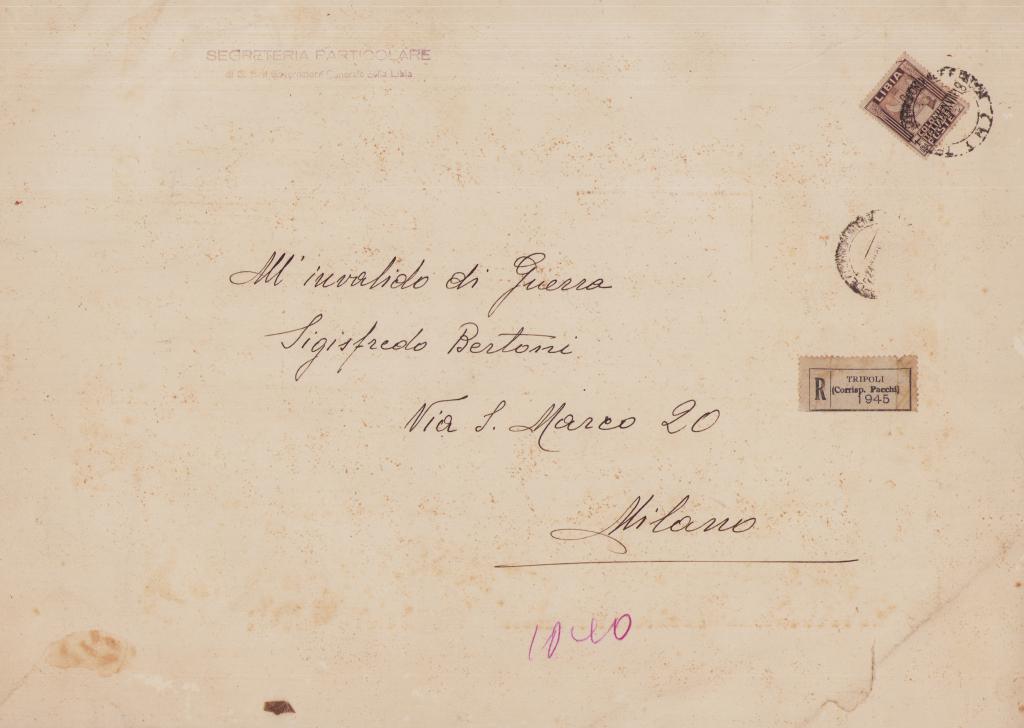 SEGRETERIA PARTICOLARE
Generale della Libia
LIBIA
All' invalido di Guerra
Sigisfredo Bertoni
Via S. Marco 20
Milano
R
TRIPOLI
(Corrisp. Pacchi)
1945